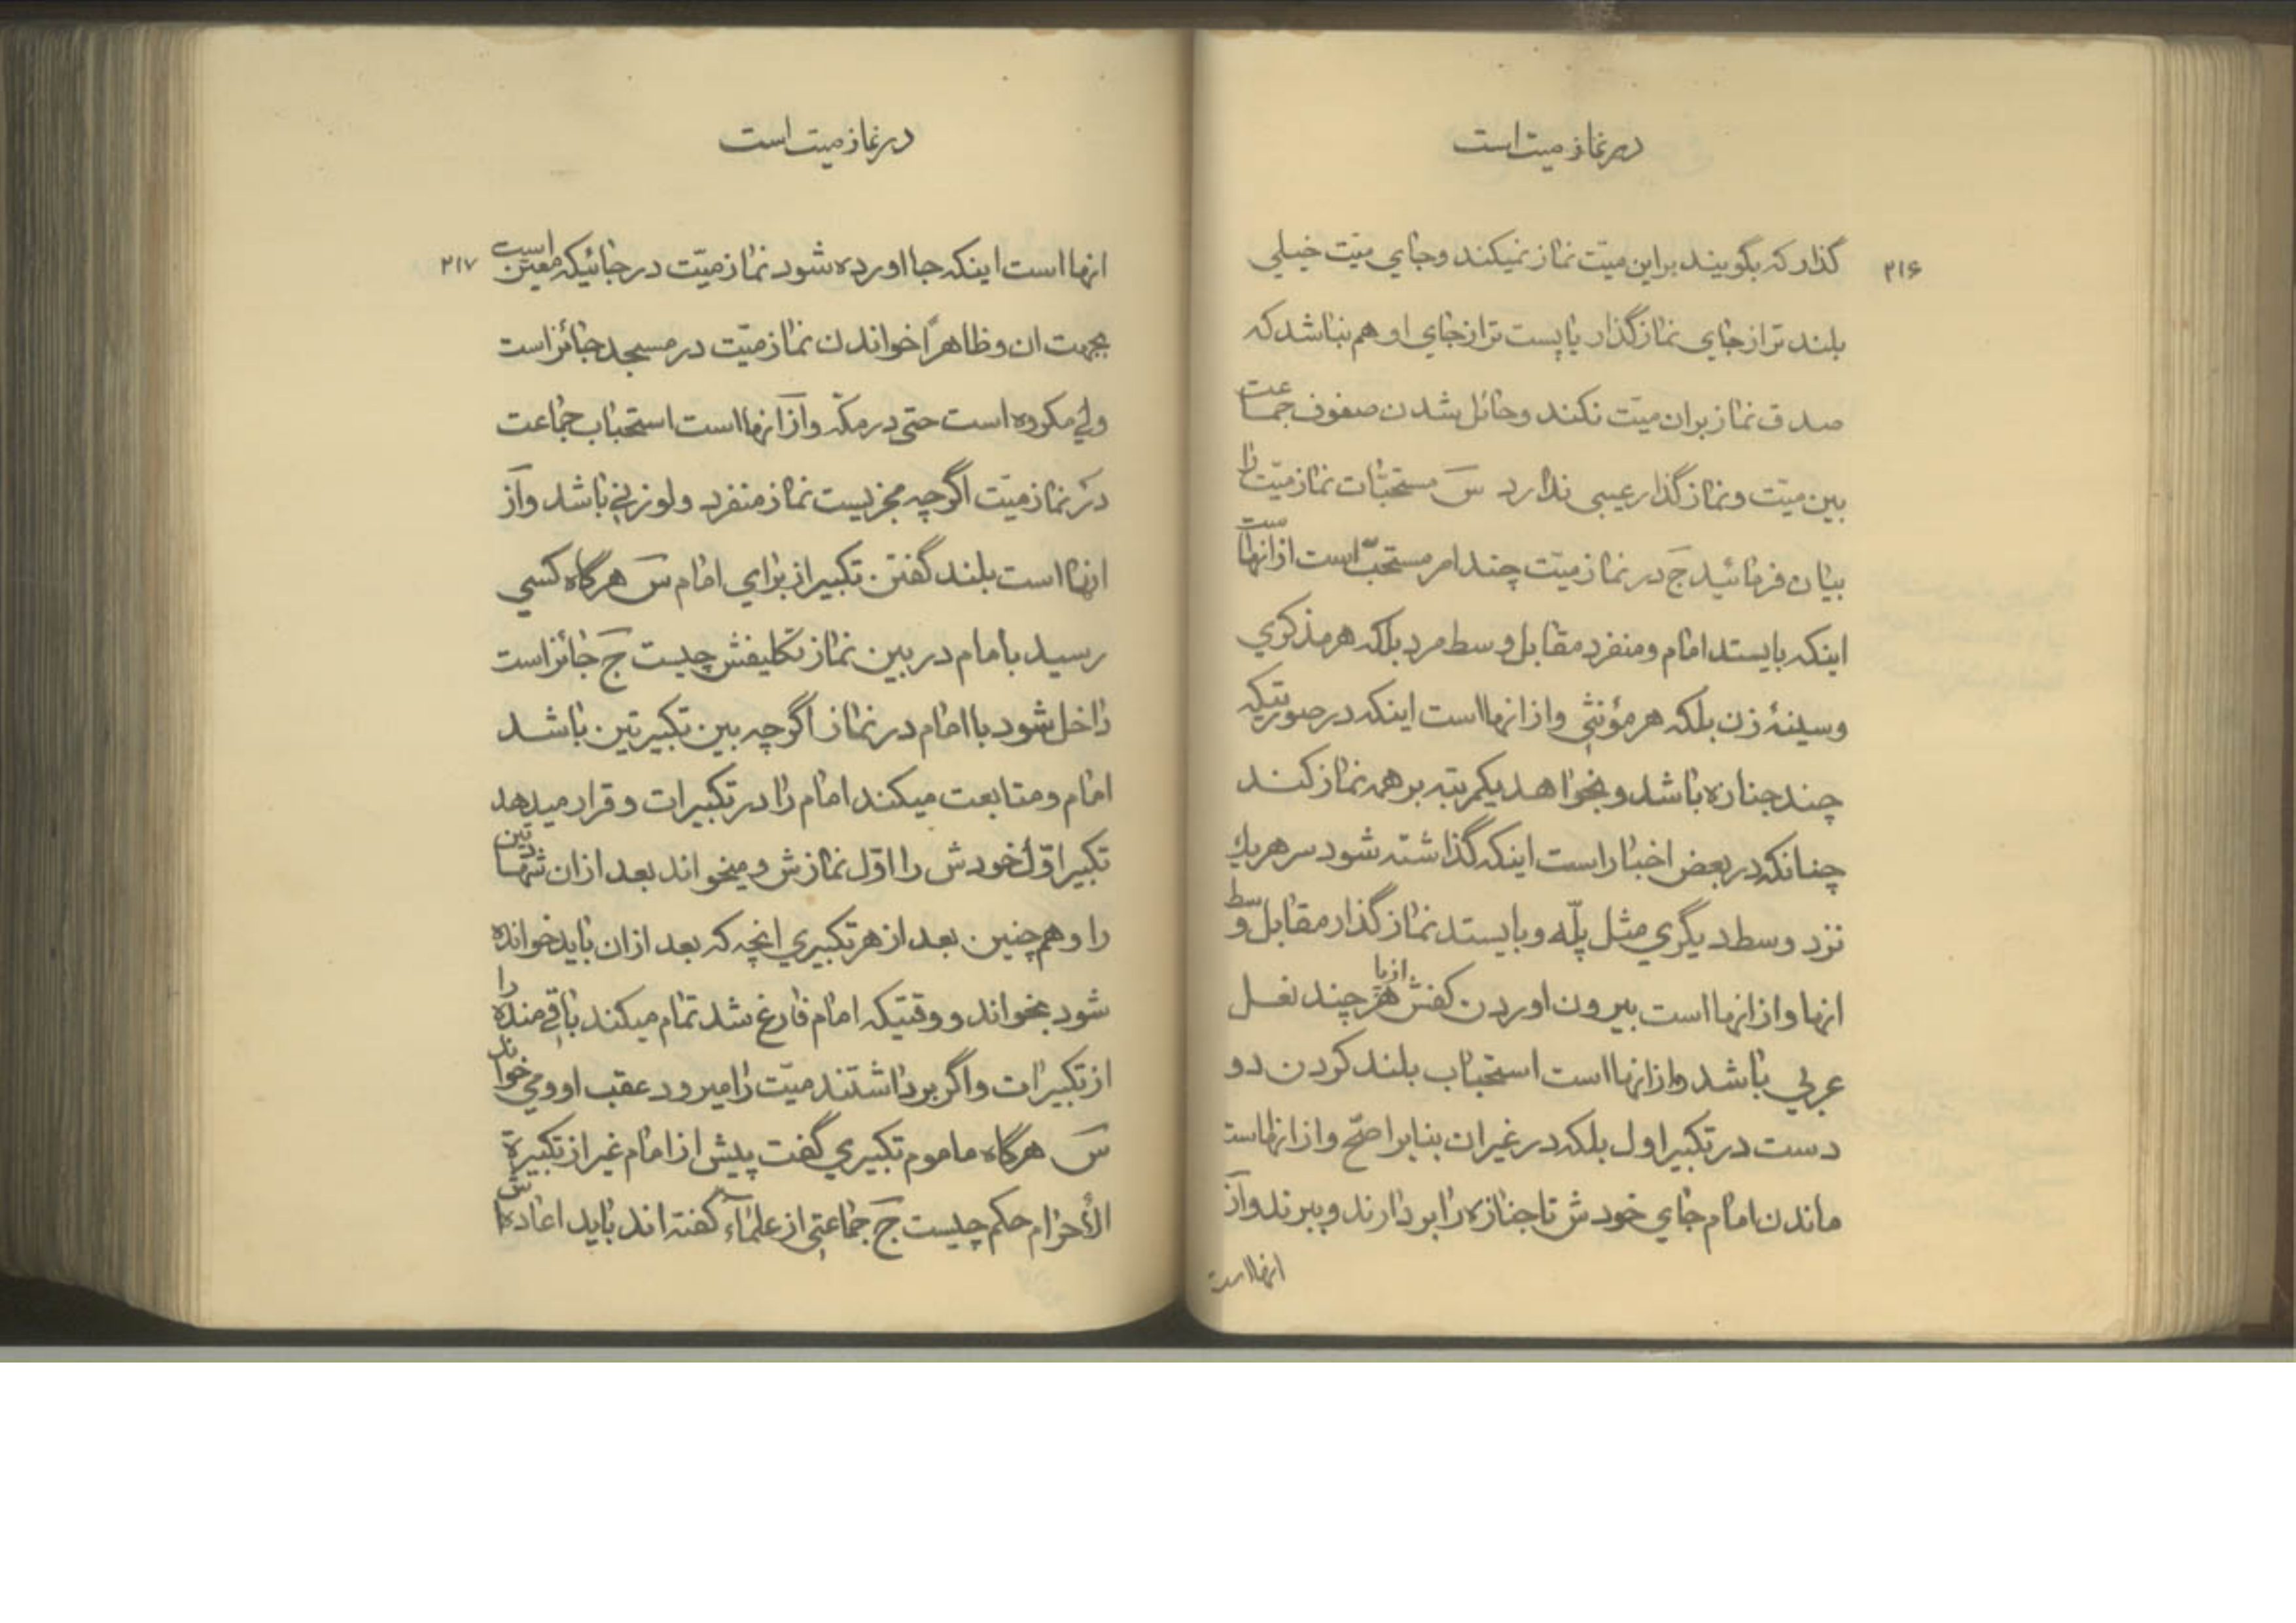 در نماز میت است
۲۱۶
گذار که بگویند براین میّت نماز نمیکند وجای میّت خیلی
بلند تر از جای نماز گذار یا پست تر از جای او هم نباشد که
صدق نماز بران میّت نکند وحائل شدن صفوف جماعت
بین میّت و نماز گذار عیبی ندارد س مستحبّات نماز میّت را
بیان فرمائید ج در نماز میّت چند امر مستحبّ است از انهاست
اینکه بایستد امام ومنفرد مقابل وسط مرد بلکه هر مذکری
وسینهٔ زن بلکه هر مؤنثی واز انها است اینکه در صورتیکه
چند جنازه باشد و بخواهد یکمرتبه بر همه نماز کند
چنانکه در بعض اخبار است اینکه گذاشته شود سر هریك
نزد وسط دیگری مثل پلّه وبایستد نماز گذار مقابل وسط
انها واز انها است بیرون اوردن کفش از پا هر چند نعل
عربی باشد واز انها است استحباب بلند کردن دو
دست در تکبیر اول بلکه در غیر ان بنا بر اصحّ واز انهاست
ماندن امام جای خودش تا جنازه را بردارند وببرند واز
انها است
در نماز میت است
۲۱۷
انها است اینکه جا اورده شود نماز میّت در جائیکه معیّن است
بجهت ان وظاهرًا خواندن نماز میّت در مسجد جائز است
ولی مکروه است حتی در مکّه واز انها است استحباب جماعت
در نماز میّت اگر چه مجزیست نماز منفرد ولو زنی باشد واز
انها است بلند گفتن تکبیر از برای امام س هر گاه کسی
رسید بامام در بین نماز تکلیفش چیست ج جائز است
داخل شود با امام در نماز اگر چه بین تکبیرتین باشد
امام ومتابعت میکند امام را در تکبیرات و قرار میدهد
تکبیر اوّل خودش را اوّل نمازش ومیخواند بعد از ان شهادتین
را وهم چنین بعد از هر تکبیری انچه که بعد از ان باید خوانده
شود بخواند و وقتیکه امام فارغ شد تمام میکند باقی منده را
از تکبیرات واگر برداشتند میّت را میرود عقب او ومی خواند
س هرگاه ماموم تکبیری گفت پیش از امام غیر از تکبیرة
الأحرام حکم چیست ج جماعتی از علماء گفته اند باید اعاده اش